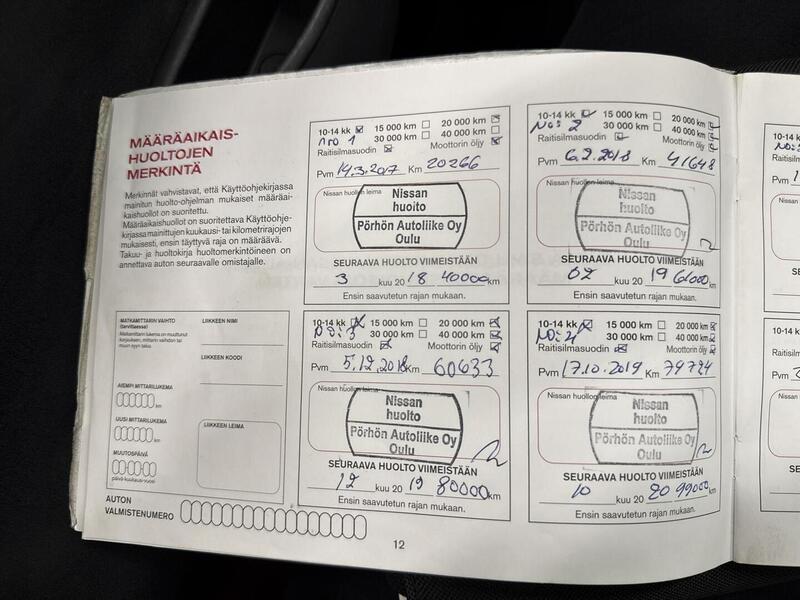 MÄÄRÄAIKAIS-
HUOLTOJEN
MERKINTÄ
Merkinnät vahvistavat, että Käyttöohjekirjassa
mainitun huolto-ohjelman mukaiset määräai-
kaishuollot on suoritettu.
Määräaikaishuollot on suoritettava Käyttöohje-
kirjassa mainittujen kuukausi- tai kilometrirajojen
mukaisesti, ensin täyttyvä raja on määräävä.
Takuu- ja huoltokirja huoltomerkintöineen on
annettava auton seuraavalle omistajalle.
MATKAMITTARIN VAIHTO
(tarvittaessa)
Matkamittarin lukema on muuttunut
korjauksen, mittarin vaihdon tai
muun syyn takia.
AIEMPI MITTARILUKEMA
km
UUSI MITTARILUKEMA
km
MUUTOSPÄIVÄ
päivä-kuukausi-vuosi
LIIKKEEN NIMI
LIIKKEEN KOODI
LIIKKEEN LEIMA
AUTON
VALMISTENUMERO
10-14 kk 15 000 km 20 000 km
nro 1 30 000 km 40 000 km
Raitisilmasuodin Moottorin öljy
Pvm 14.3.2017 Km 20266
Nissan huollon leima
Nissan
huolto
Pörhön Autoliike Oy
Oulu
SEURAAVA HUOLTO VIIMEISTÄÄN
3 kuu 20 18 40000 km
Ensin saavutetun rajan mukaan.
10-14 kk 15 000 km 20 000 km
No: 2 30 000 km 40 000 km
Raitisilmasuodin Moottorin öljy
Pvm 6.2.2018 Km 41648
Nissan huollon leima
Nissan
huolto
Pörhön Autoliike Oy
Oulu
SEURAAVA HUOLTO VIIMEISTÄÄN
02 kuu 20 19 61000 km
Ensin saavutetun rajan mukaan.
10-14 kk 15 000 km 20 000 km
No: 3 30 000 km 40 000 km
Raitisilmasuodin Moottorin öljy
Pvm 5.12.2018 Km 60633
Nissan huollon leima
Nissan
huolto
Pörhön Autoliike Oy
Oulu
SEURAAVA HUOLTO VIIMEISTÄÄN
12 kuu 20 19 80000 km
Ensin saavutetun rajan mukaan.
10-14 kk 15 000 km 20 000 km
No: 4 30 000 km 40 000 km
Raitisilmasuodin Moottorin öljy
Pvm 17.10.2019 Km 79724
Nissan huollon leima
Nissan
huolto
Pörhön Autoliike Oy
Oulu
SEURAAVA HUOLTO VIIMEISTÄÄN
10 kuu 20 20 99000 km
Ensin saavutetun rajan mukaan.
12